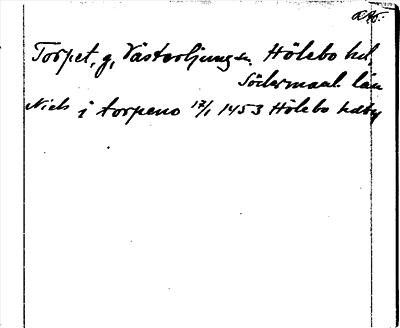 Torpet, g, Västerljung sn. Hölebo hd,
Södermanl. län
Niels i torpeno 17/1 1453 Hölebo hdby